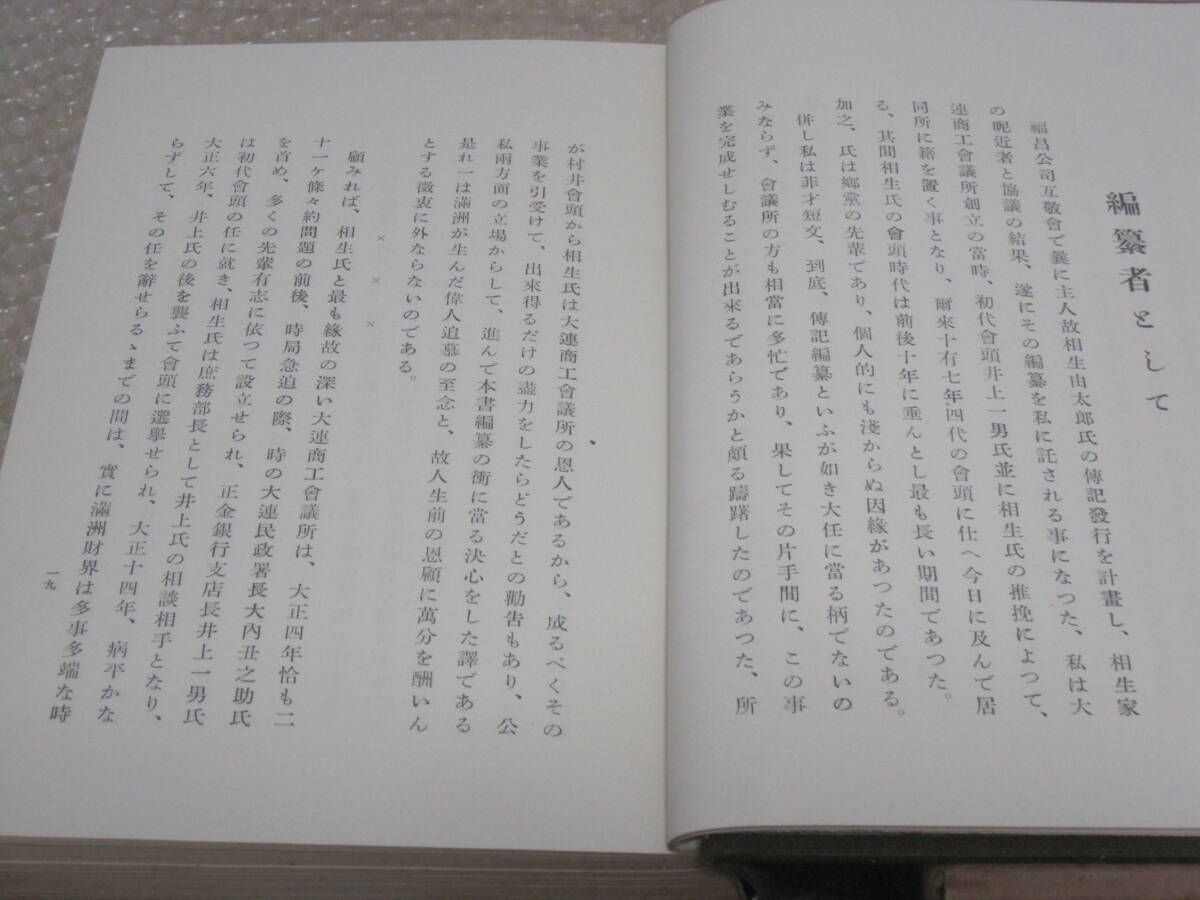 編纂者として
福昌公司互敬會で曩に主人故相生由太郎氏の傳記發行を計畫し、相生家
の昵近者と協議の結果、遂にその編纂を私に託される事になつた、私は大
連商工會議所創立の當時、初代會頭井上一男氏並に相生氏の推挽によつて、
同所に籍を置く事となり、爾來十有七年四代の會頭に仕へ今日に及んで居
る、其間相生氏の會頭時代は前後十年に垂んとし最も長い期間であつた。
加之、氏は鄕黨の先輩であり、個人的にも淺からぬ因緣があつたのである。
併し私は菲才短文、到底、傳記編纂といふが如き大任に當る柄でないの
みならず、會議所の方も相當に多忙であり、果してその片手間に、この事
業を完成せしむることが出來るであらうかと頗る躊躇したのであつた、所
が村井會頭から相生氏は大連商工會議所の恩人であるから、成るべくその
事業を引受けて、出來得るだけの盡力をしたらどうだとの勸告もあり、公
私兩方面の立場からして、進んで本書編纂の衝に當る決心をした譯である
是れ一は滿洲が生んだ偉人追慕の至念と、故人生前の恩顧に萬分を酬いん
とする微衷に外ならないのである。
× × ×
顧みれば、相生氏と最も緣故の深い大連商工會議所は、大正四年恰も二
十一ヶ條々約問題の前後、時局急迫の際、時の大連民政署長大內丑之助氏
を首め、多くの先輩有志に依つて設立せられ、正金銀行支店長井上一男氏
は初代會頭の任に就き、相生氏は庶務部長として井上氏の相談相手となり、
大正六年、井上氏の後を襲ふて會頭に選擧せられ、大正十四年、病平かな
らずして、その任を辭せらるゝまでの間は、實に滿洲財界は多事多端な時
一九